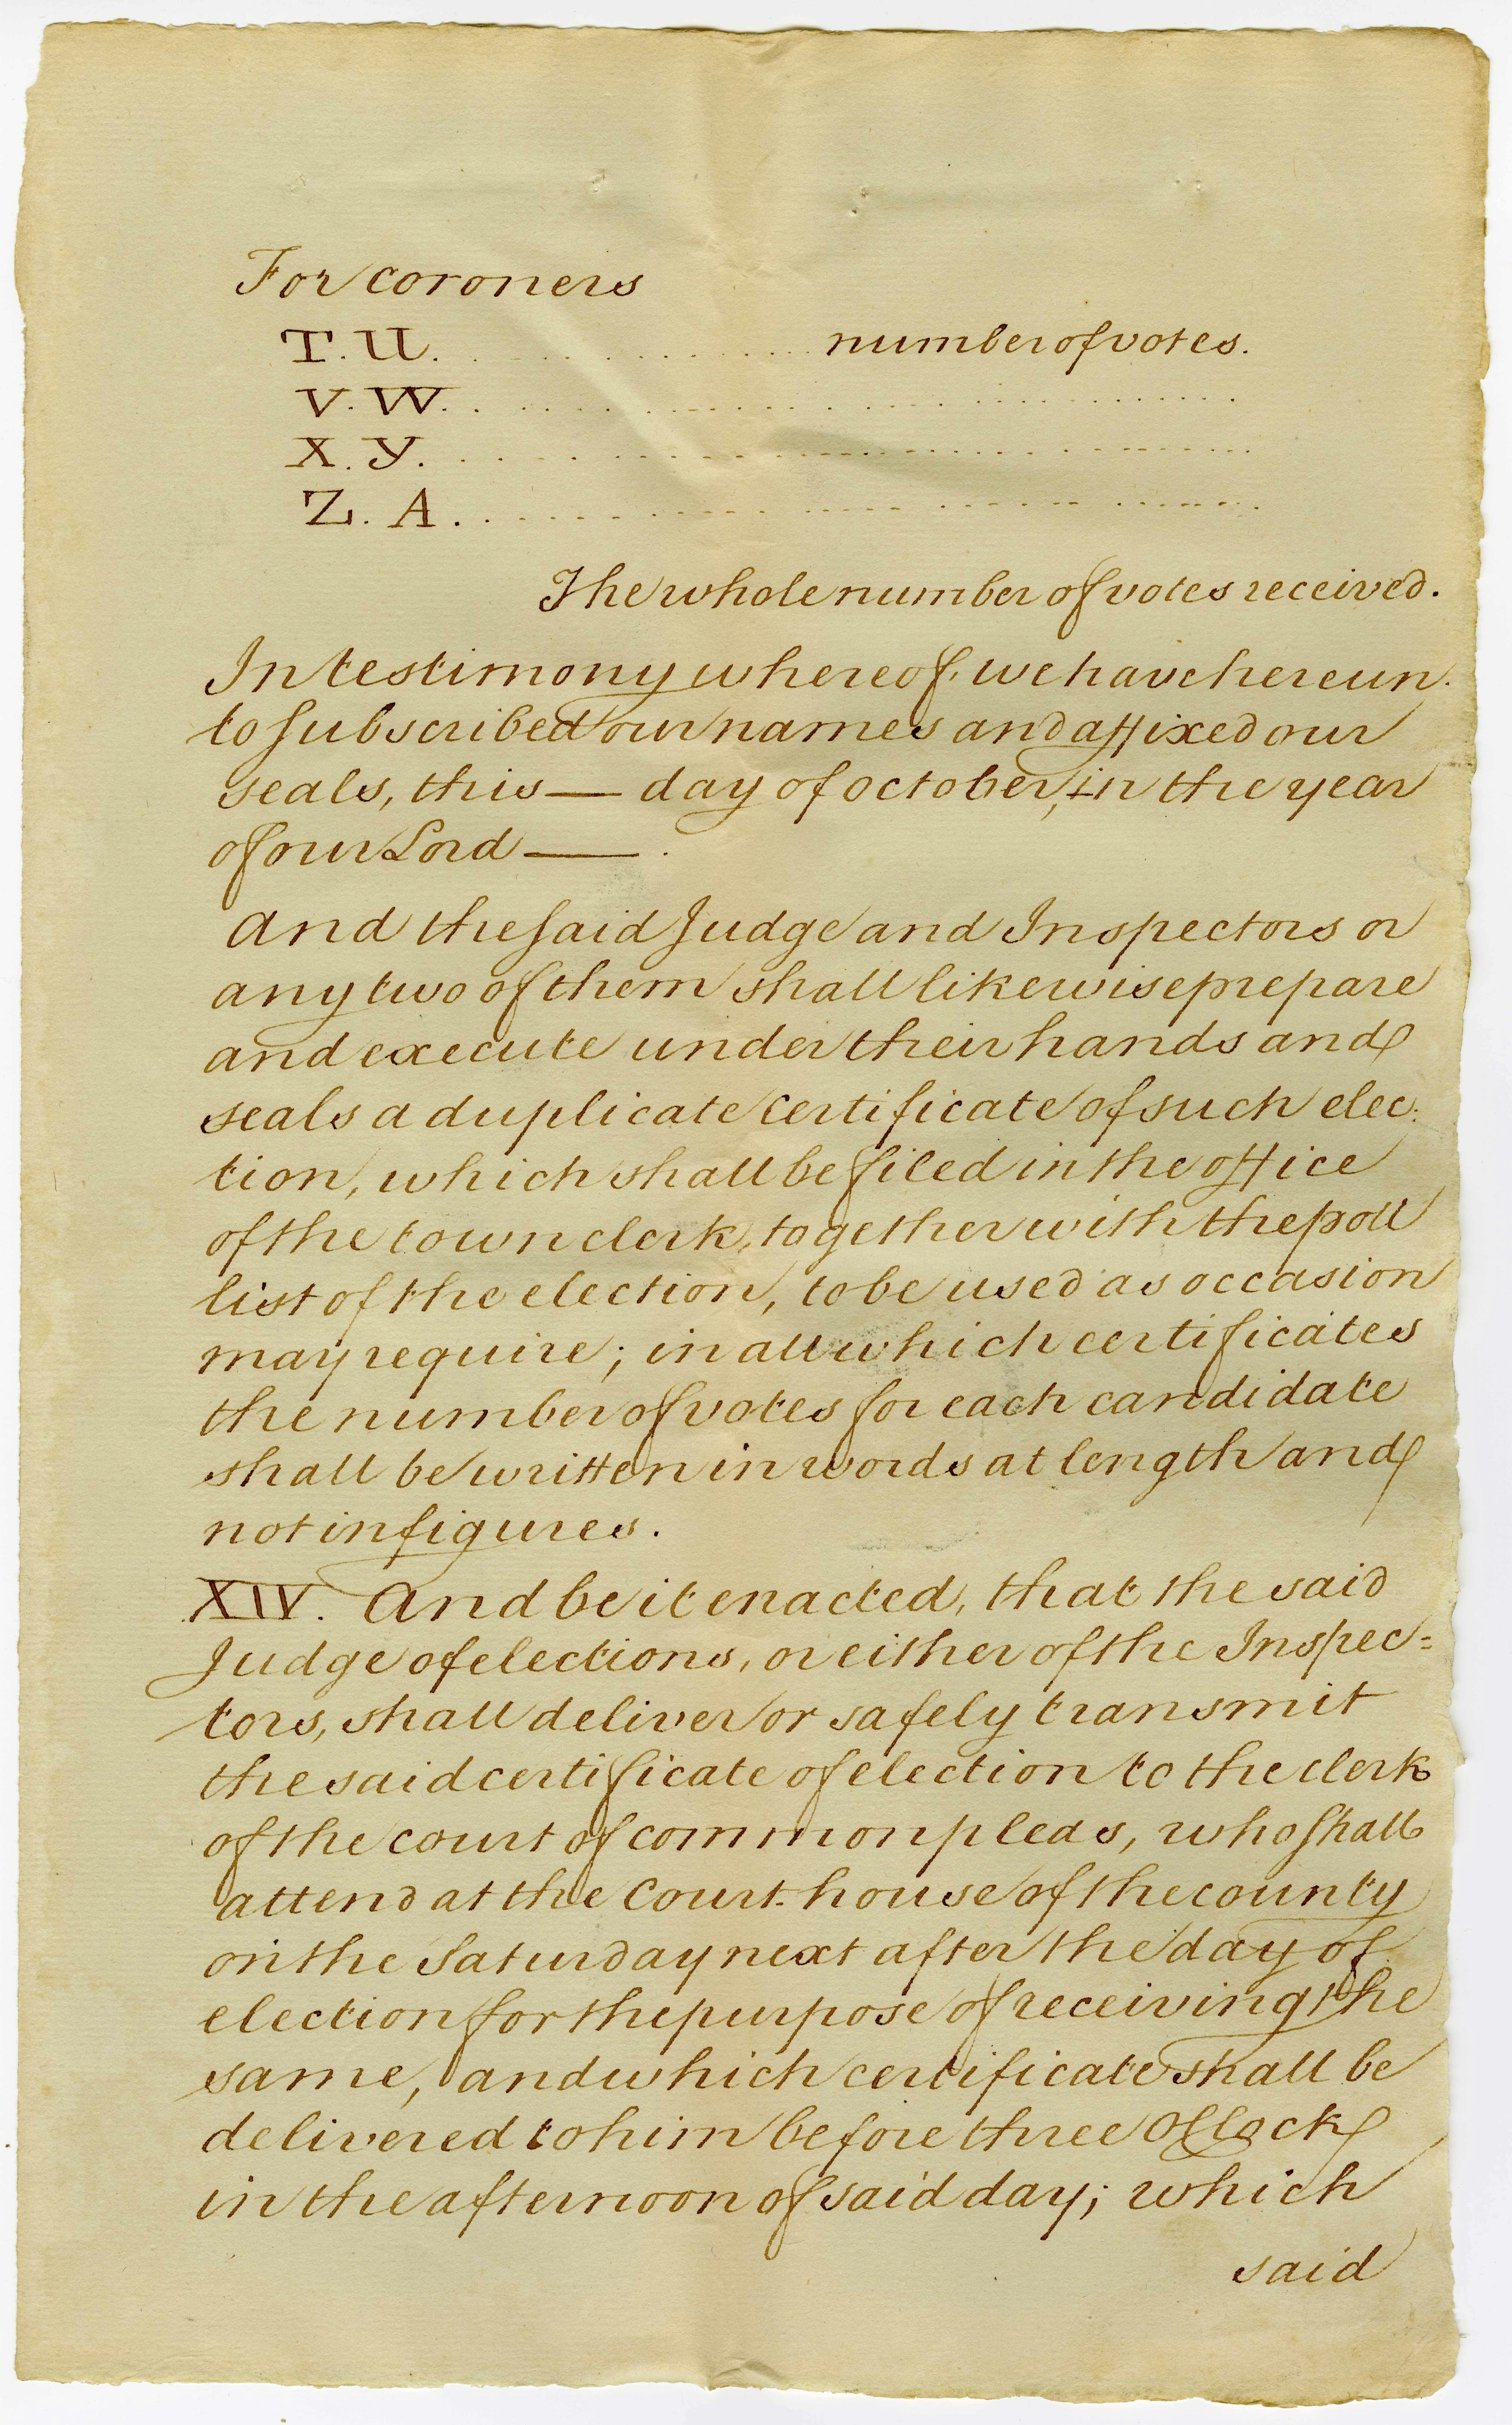 For coroners
T. U. . . . . . . . . . . . . . . . number of votes.
V. W. . . . . . . . . . . . . . . . . . . . . . . . . .
X. Y. . . . . . . . . . . . . . . . . . . . . . . . . .
Z. A. . . . . . . . . . . . . . . . . . . . . . . . . .
The whole number of votes received.
In testimony whereof, we have hereun-
to subscribed our names and affixed our
seals, this — day of october, in the year
of our Lord —— .
And the said Judge and Inspectors or
any two of them shall likewise prepare
and execute under their hands and
seals a duplicate certificate of such elec-
tion, which shall be filed in the office
of the town clerk, together with the poll
list of the election, to be used as occasion
may require; in all which certificates
the number of votes for each candidate
shall be written in words at length and
not in figures.
XIV. And be it enacted, that the said
Judge of elections, or either of the Inspec=
tors, shall deliver or safely transmit
the said certificate of election to the clerk
of the court of common pleas, who shall
attend at the Court-house of the county
on the Saturday next after the day of
election for the purpose of receiving the
same, and which certificate shall be
delivered to him before three O'Clock
in the afternoon of said day; which
said